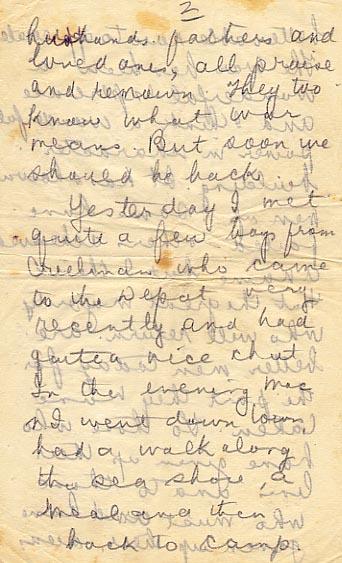 2
husbands fathers and
loved ones, all praise
and renown. They too
know what war
means. But soon we
should be back.
Yesterday I met
quite a few boys from
who came
to the Depot very
recently and had
quite a nice chat
In the evening Mac
& I went down town
had a walk along
the sea shore, a
meal and then
back to camp.